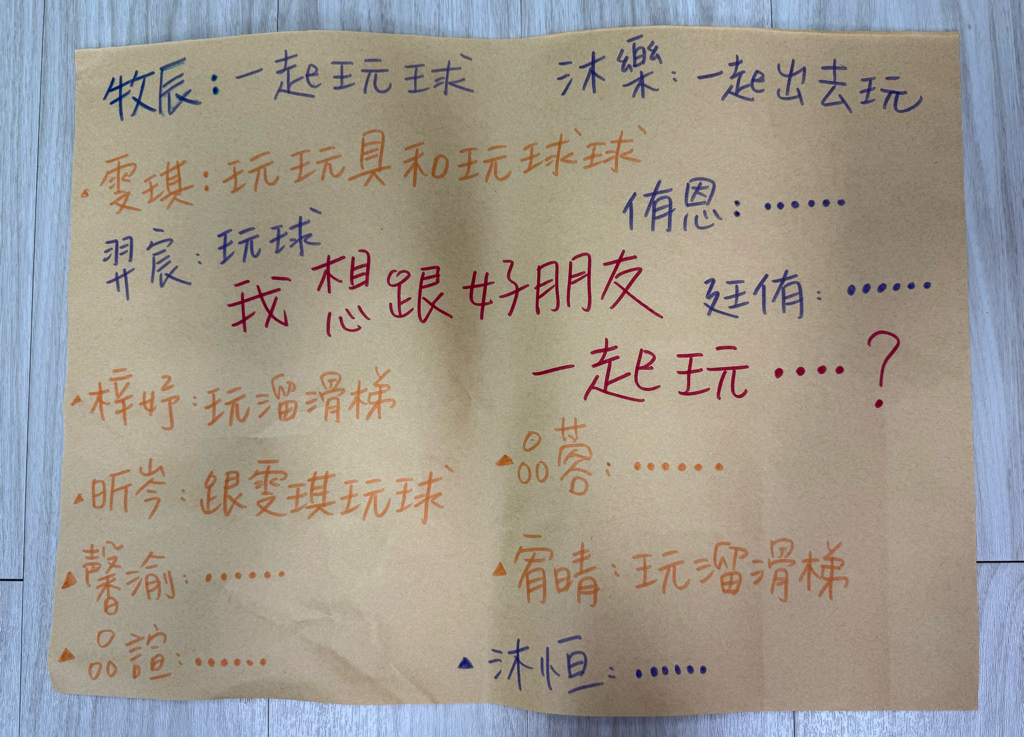 牧宸：一起玩球
沐樂：一起出去玩
雯琪：玩玩具和玩球球
侑恩：......
羿宸：玩球
我想跟好朋友
廷侑：......
一起玩....？
梓妤：玩溜滑梯
品蓉：......
昕岑：跟雯琪玩球
馨渝：......
宥晴：玩溜滑梯
品諠：......
沐恒：......